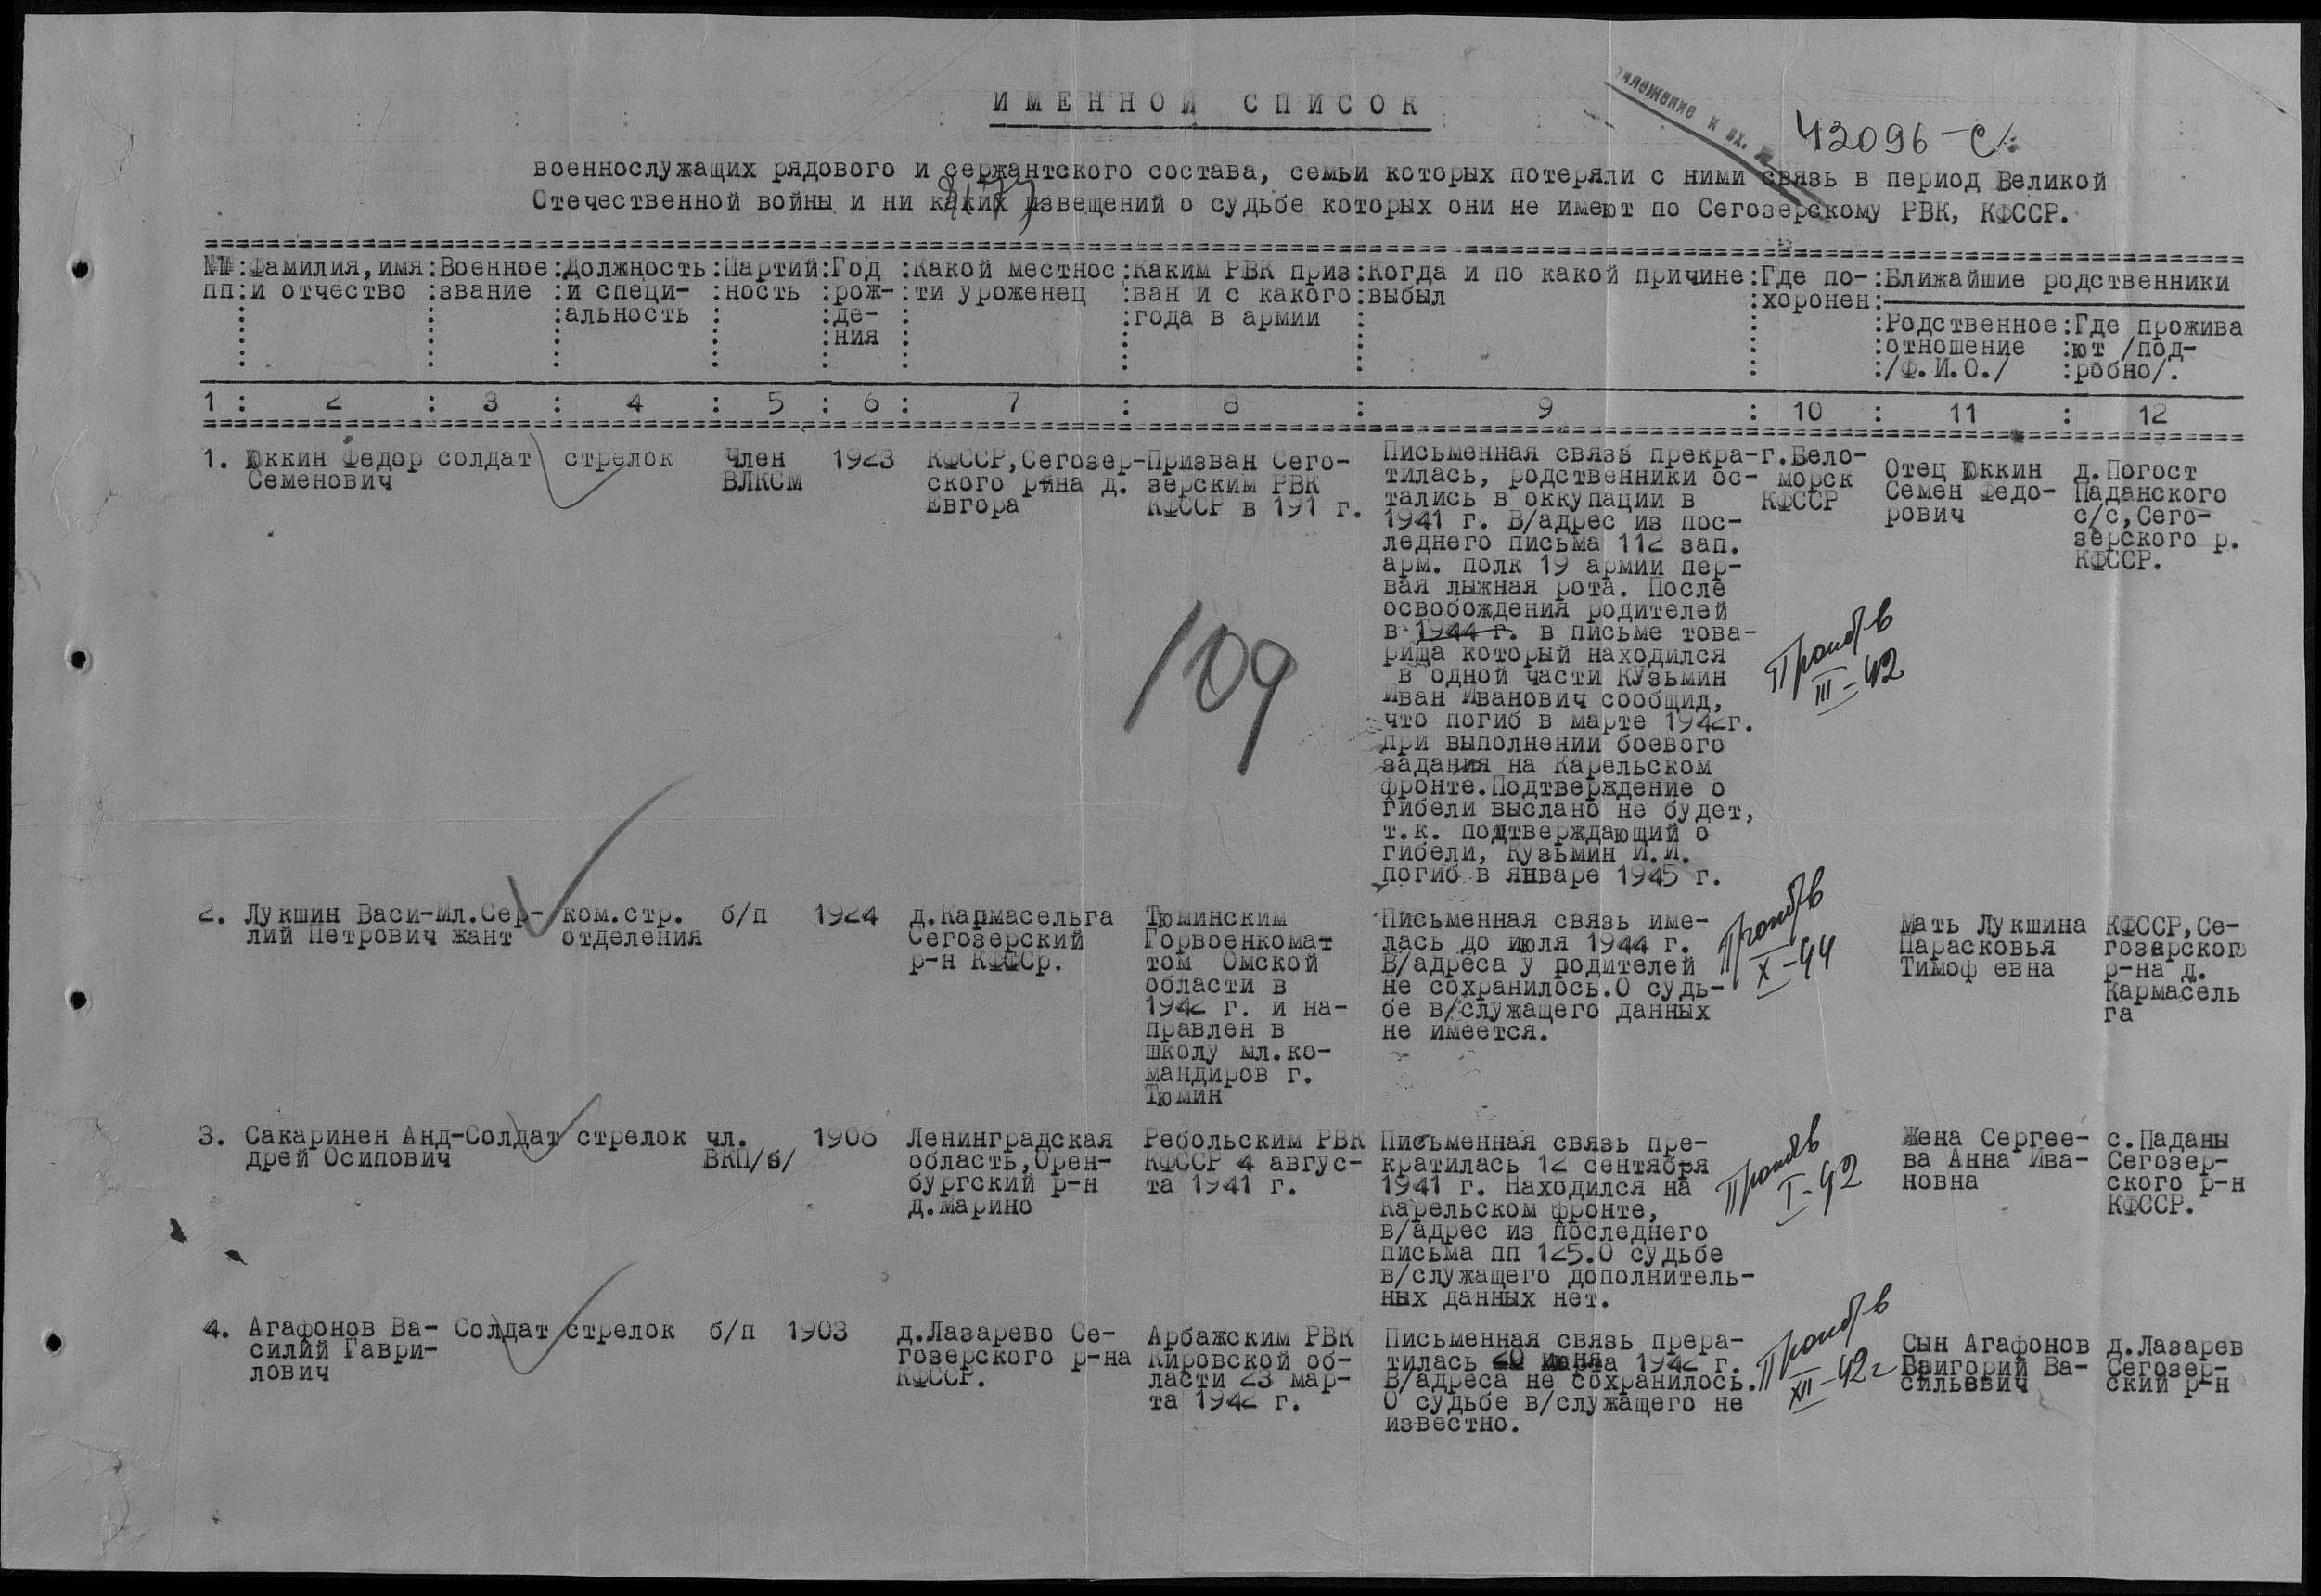 ИМЕННОЙ СПИСОК
приложение к вх. №
42096-с
военнослужащих рядового и сержантского состава, семьи которых потеряли с ними связь в период Великой
Отечественной войны и ни каких извещений о судьбе которых они не имеют по Сегозерскому РВК, КФССР.
№№:Фамилия,имя:Военное:Должность:Партий:Год :Какой местнос:Каким РВК приз:Когда и по какой причине:Где по-:Ближайшие родственники
пп:и отчество :звание :и специ- :ность :рож-:ти уроженец :ван и с какого:выбыл :хоронен:
:альность :де- :года в армии
:ния
:Родственное:Где прожива
:отношение :ют /под-
:/Ф.И.О./ :робно/.
1 : 2 : 3 : 4 : 5 : 6 : 7 : 8 : 9 : 10 : 11 : 12
1. Юккин Федор
Семенович
солдат
стрелок
Член
ВЛКСМ
1923
КФССР,Сегозер-
ского рйна д.
Евгора
Призван Сего-
зерским РВК
КФССР в 191 г.
Письменная связь прекра-
тилась, родственники ос-
тались в оккупации в
1941 г. В/адрес из пос-
леднего письма 112 зап.
арм. полк 19 армии пер-
вая лыжная рота. После
освобождения родителей
в 1944 г. в письме това-
рища который находился
в одной части Кузьмин
Иван Иванович сообщид,
что погиб в марте 1942г.
при выполнении боевого
задания на Карельском
фронте.Подтверждение о
гибели выслано не будет,
т.к. подтверждающий о
гибели, Кузьмин И.И.
погиб в январе 1945 г.
г.Бело-
морск
КФССР
III-42
Отец Юккин
Семен Федо-
рович
д.Погост
Паданского
с/с,Сего-
зерского р.
КФССР.
109
2. Лукшин Васи-
лий Петрович
Мл.Сер-
жант
ком.стр.
отделения
б/п
1924
д.Кармасельга
Сегозерский
р-н КФССр.
Тюминским
Горвоенкомат
том Омской
области в
1942 г. и на-
правлен в
школу мл.ко-
мандиров г.
Тюмин
Письменная связь име-
лась до июля 1944 г.
В/адреса у родителей
не сохранилось.О судь-
бе в/служащего данных
не имеется.
X-44
Мать Лукшина
Парасковья
Тимоф евна
КФССР,Се-
гозерского
р-на д.
Кармасель
га
3. Сакаринен Анд-
дрей Осипович
Солдат
стрелок
чл.
ВКП/б/
1906
Ленинградская
область,Орен-
бургский р-н
д.Марино
Ребольским РВК
КФССР 4 авгус-
та 1941 г.
Письменная связь пре-
кратилась 12 сентября
1941 г. Находился на
Карельском фронте,
в/адрес из последнего
письма пп 125.О судьбе
в/служащего дополнитель-
ных данных нет.
I-42
Жена Сергее-
ва Анна Ива-
новна
с.Паданы
Сегозер-
ского р-н
КФССР.
4. Агафонов Ва-
силий Гаври-
лович
Солдат
стрелок
б/п
1903
д.Лазарево Се-
гозерского р-на
КФССР.
Арбажским РВК
Кировской об-
ласти 23 мар-
та 1942 г.
Письменная связь прера-
тилась 1942 г.
В/адреса не сохранилось.
О судьбе в/служащего не
известно.
XII-42г
Сын Агафонов
Григорий Ва-
сильевич
д.Лазарев
Сегозер-
ский р-н